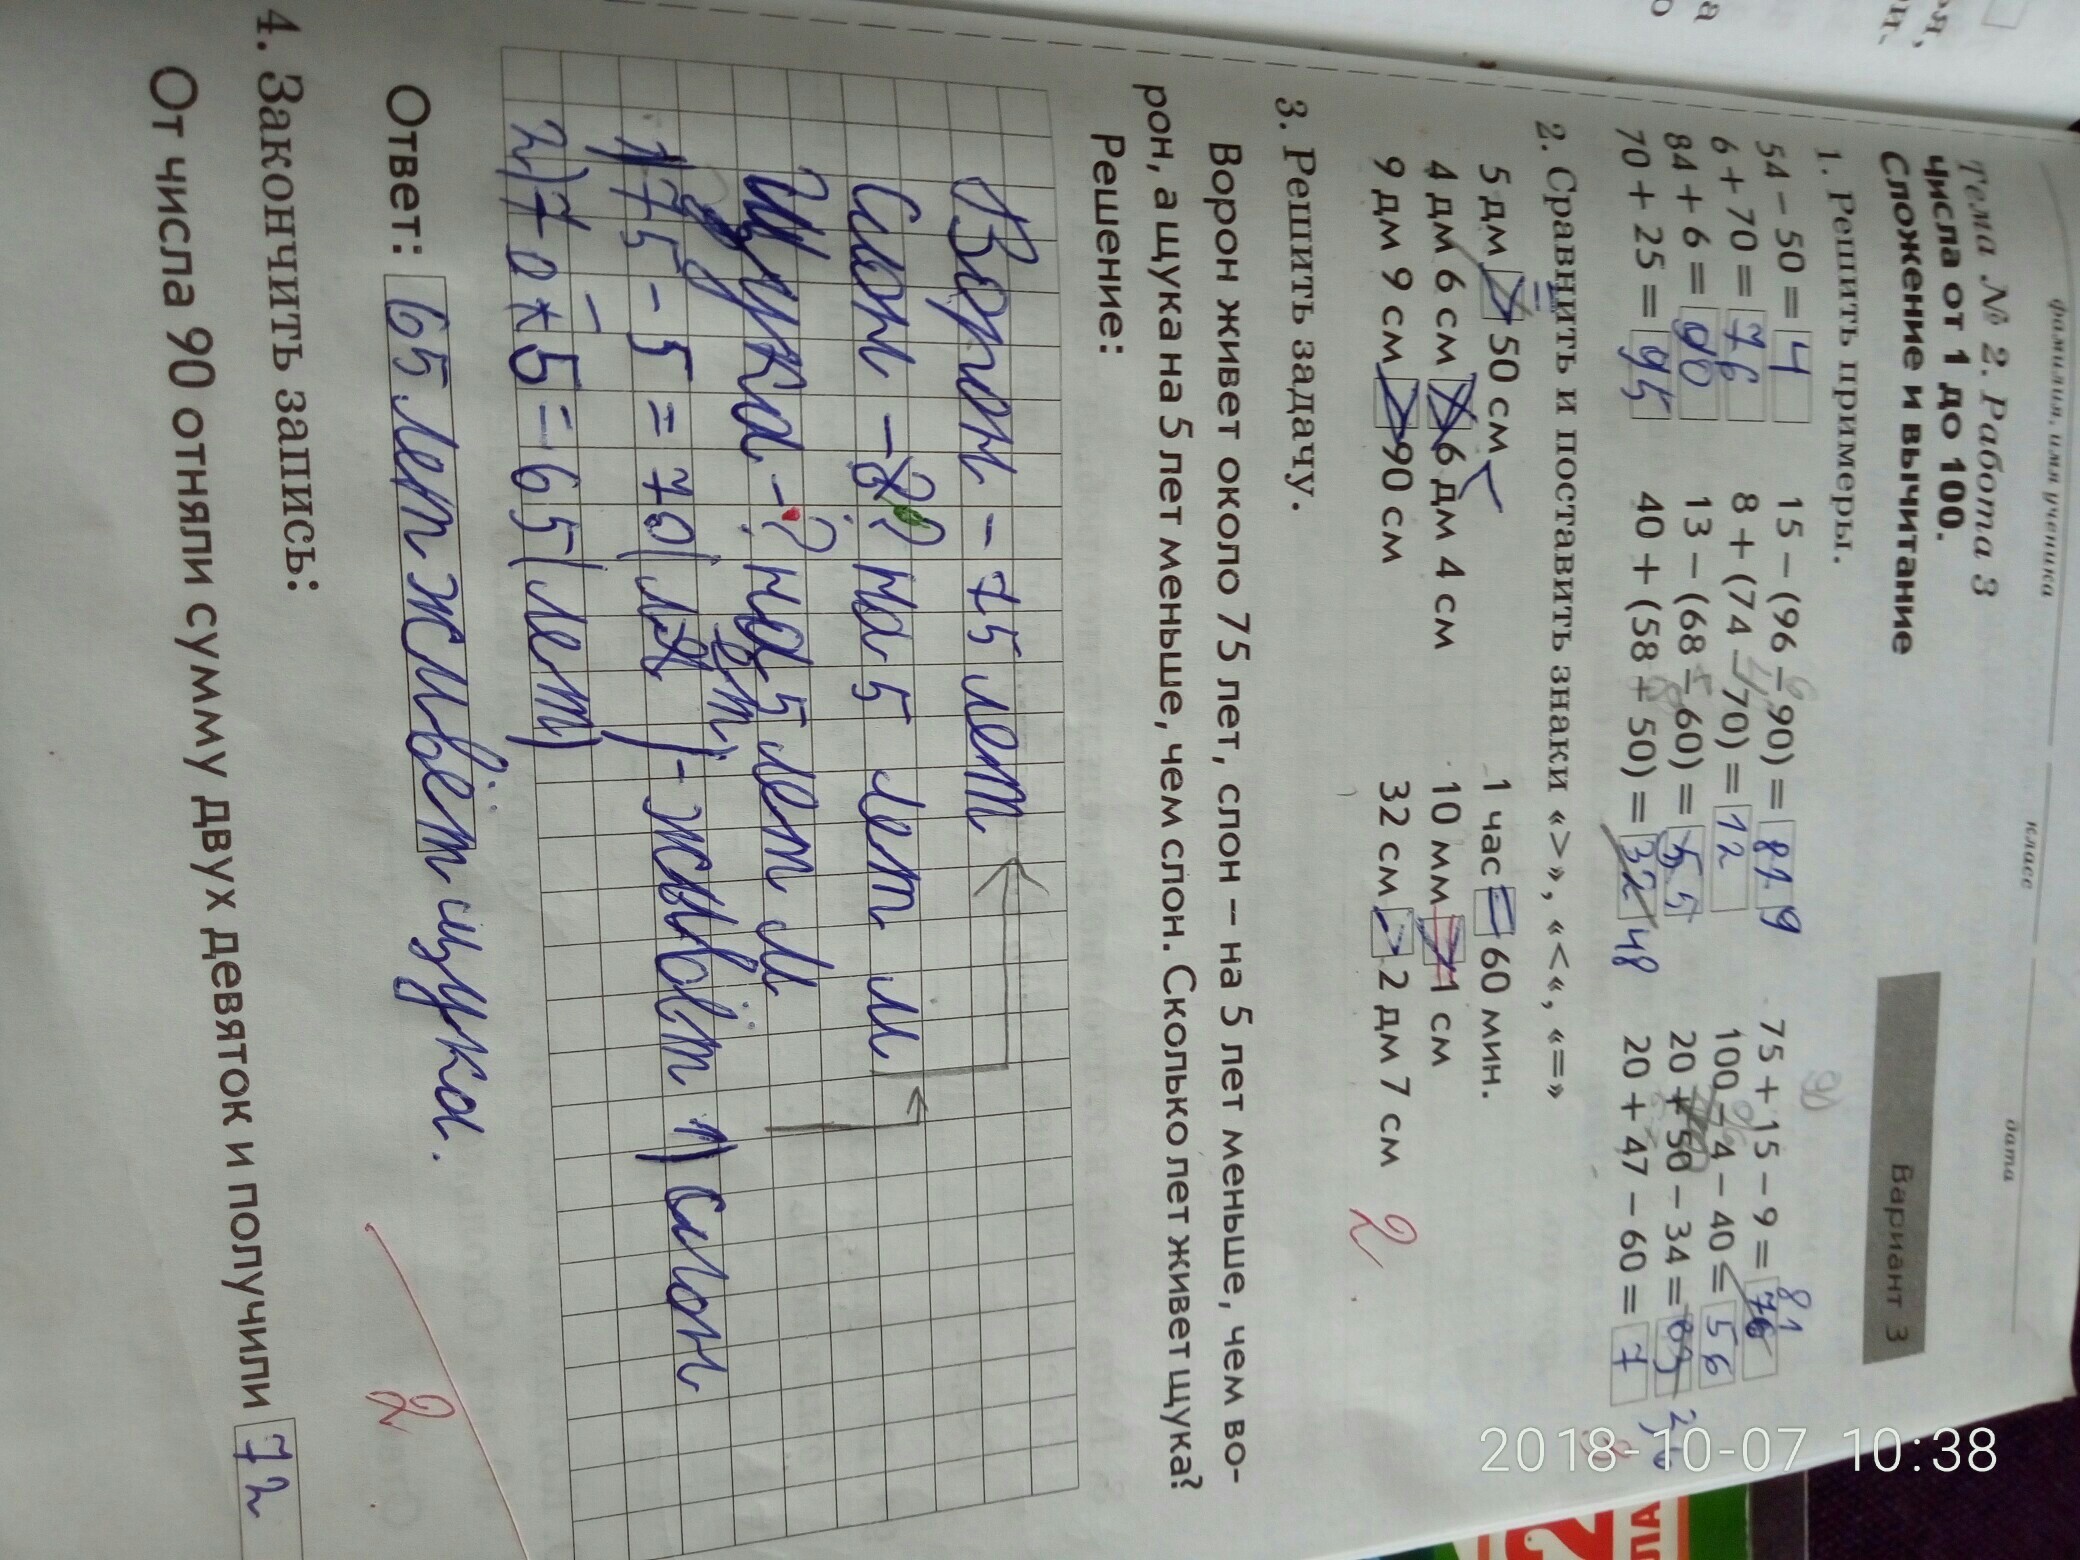 фамилия, имя ученика класс дата
Тема № 2. Работа 3
Числа от 1 до 100.
Сложение и вычитание
Вариант 3
1. Решить примеры.
54 – 50 = 4 15 – (96 – 90) = 9 75 + 15 – 9 = 81
6 + 70 = 76 8 + (74 – 70) = 12 100 – 4 – 40 = 56
84 + 6 = 90 13 – (68 – 60) = 5 20 + 50 – 34 =
70 + 25 = 95 40 + (58 – 50) = 48 20 + 47 – 60 = 7
2. Сравнить и поставить знаки «>», «<«, «=»
5 дм = 50 см 1 час = 60 мин.
4 дм 6 см 6 дм 4 см 10 мм 1 см
9 дм 9 см > 90 см 32 см > 2 дм 7 см
2
3. Решить задачу.
Ворон живет около 75 лет, слон — на 5 лет меньше, чем во-
рон, а щука на 5 лет меньше, чем слон. Сколько лет живет щука?
Решение:
Ворон – 75 лет
Слон – ? на 5 лет м
Щука – ? на 5 лет м
1) 75 – 5 = 70 (лет) – живёт 1) слон
2) 70 – 5 = 65 (лет)
Ответ: 65 лет живёт щука.
2
4. Закончить запись:
От числа 90 отняли сумму двух девяток и получили 72
2018-10-07 10:38